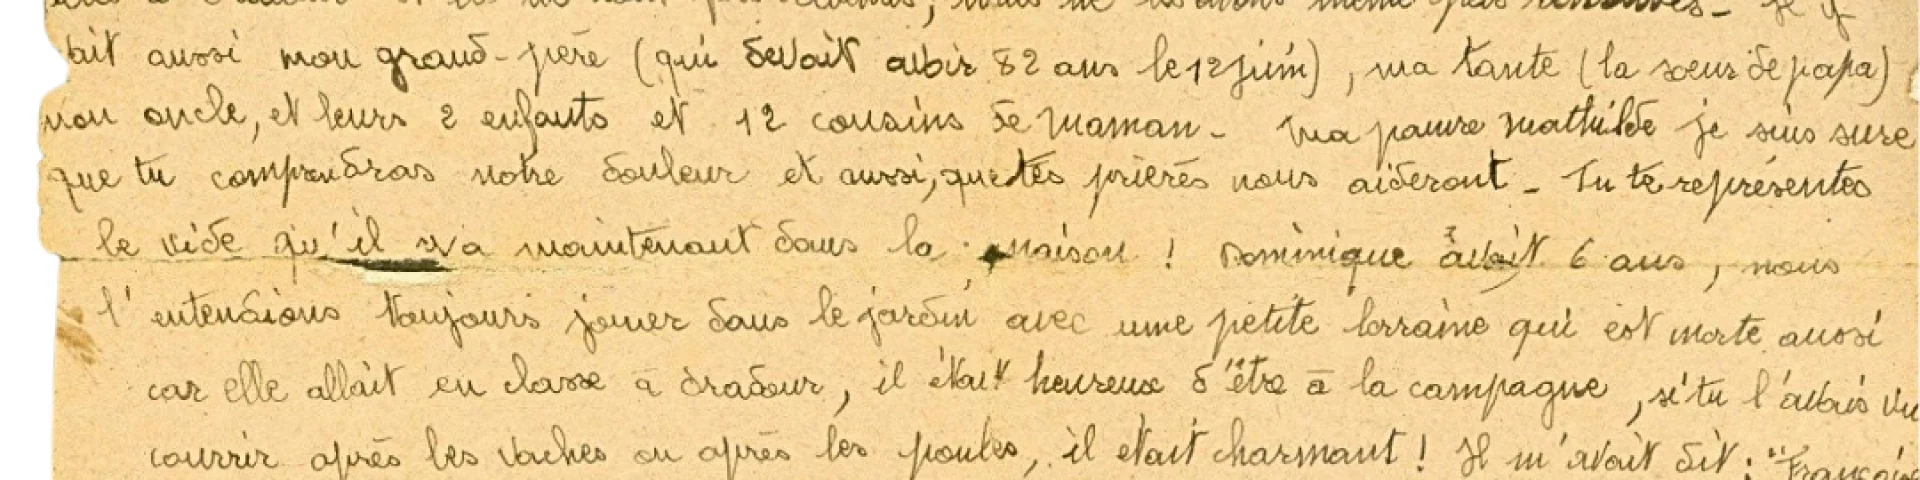 à Oradour et ils ne sont pas revenus, nous ne les avons même pas retrouvés - Il y
ait aussi mon grand-père (qui devait avoir 82 ans le 12 juin), ma tante (la soeur de papa)
mon oncle, et leurs 2 enfants et 12 cousins de maman - Ma pauvre Mathilde je suis sure
que tu comprendras notre douleur et aussi, que tes prières nous aideront - Tu te représentes
le vide qu'il y a maintenant dans la maison ! Dominique avait 6 ans, nous
l'entendions toujours jouer dans le jardin avec une petite lorraine qui est morte aussi
car elle allait en classe à Oradour, il était heureux d'être à la campagne, si tu l'avais vu
courrir après les vaches ou après les poules, il etait charmant ! Il m'avait dit : "